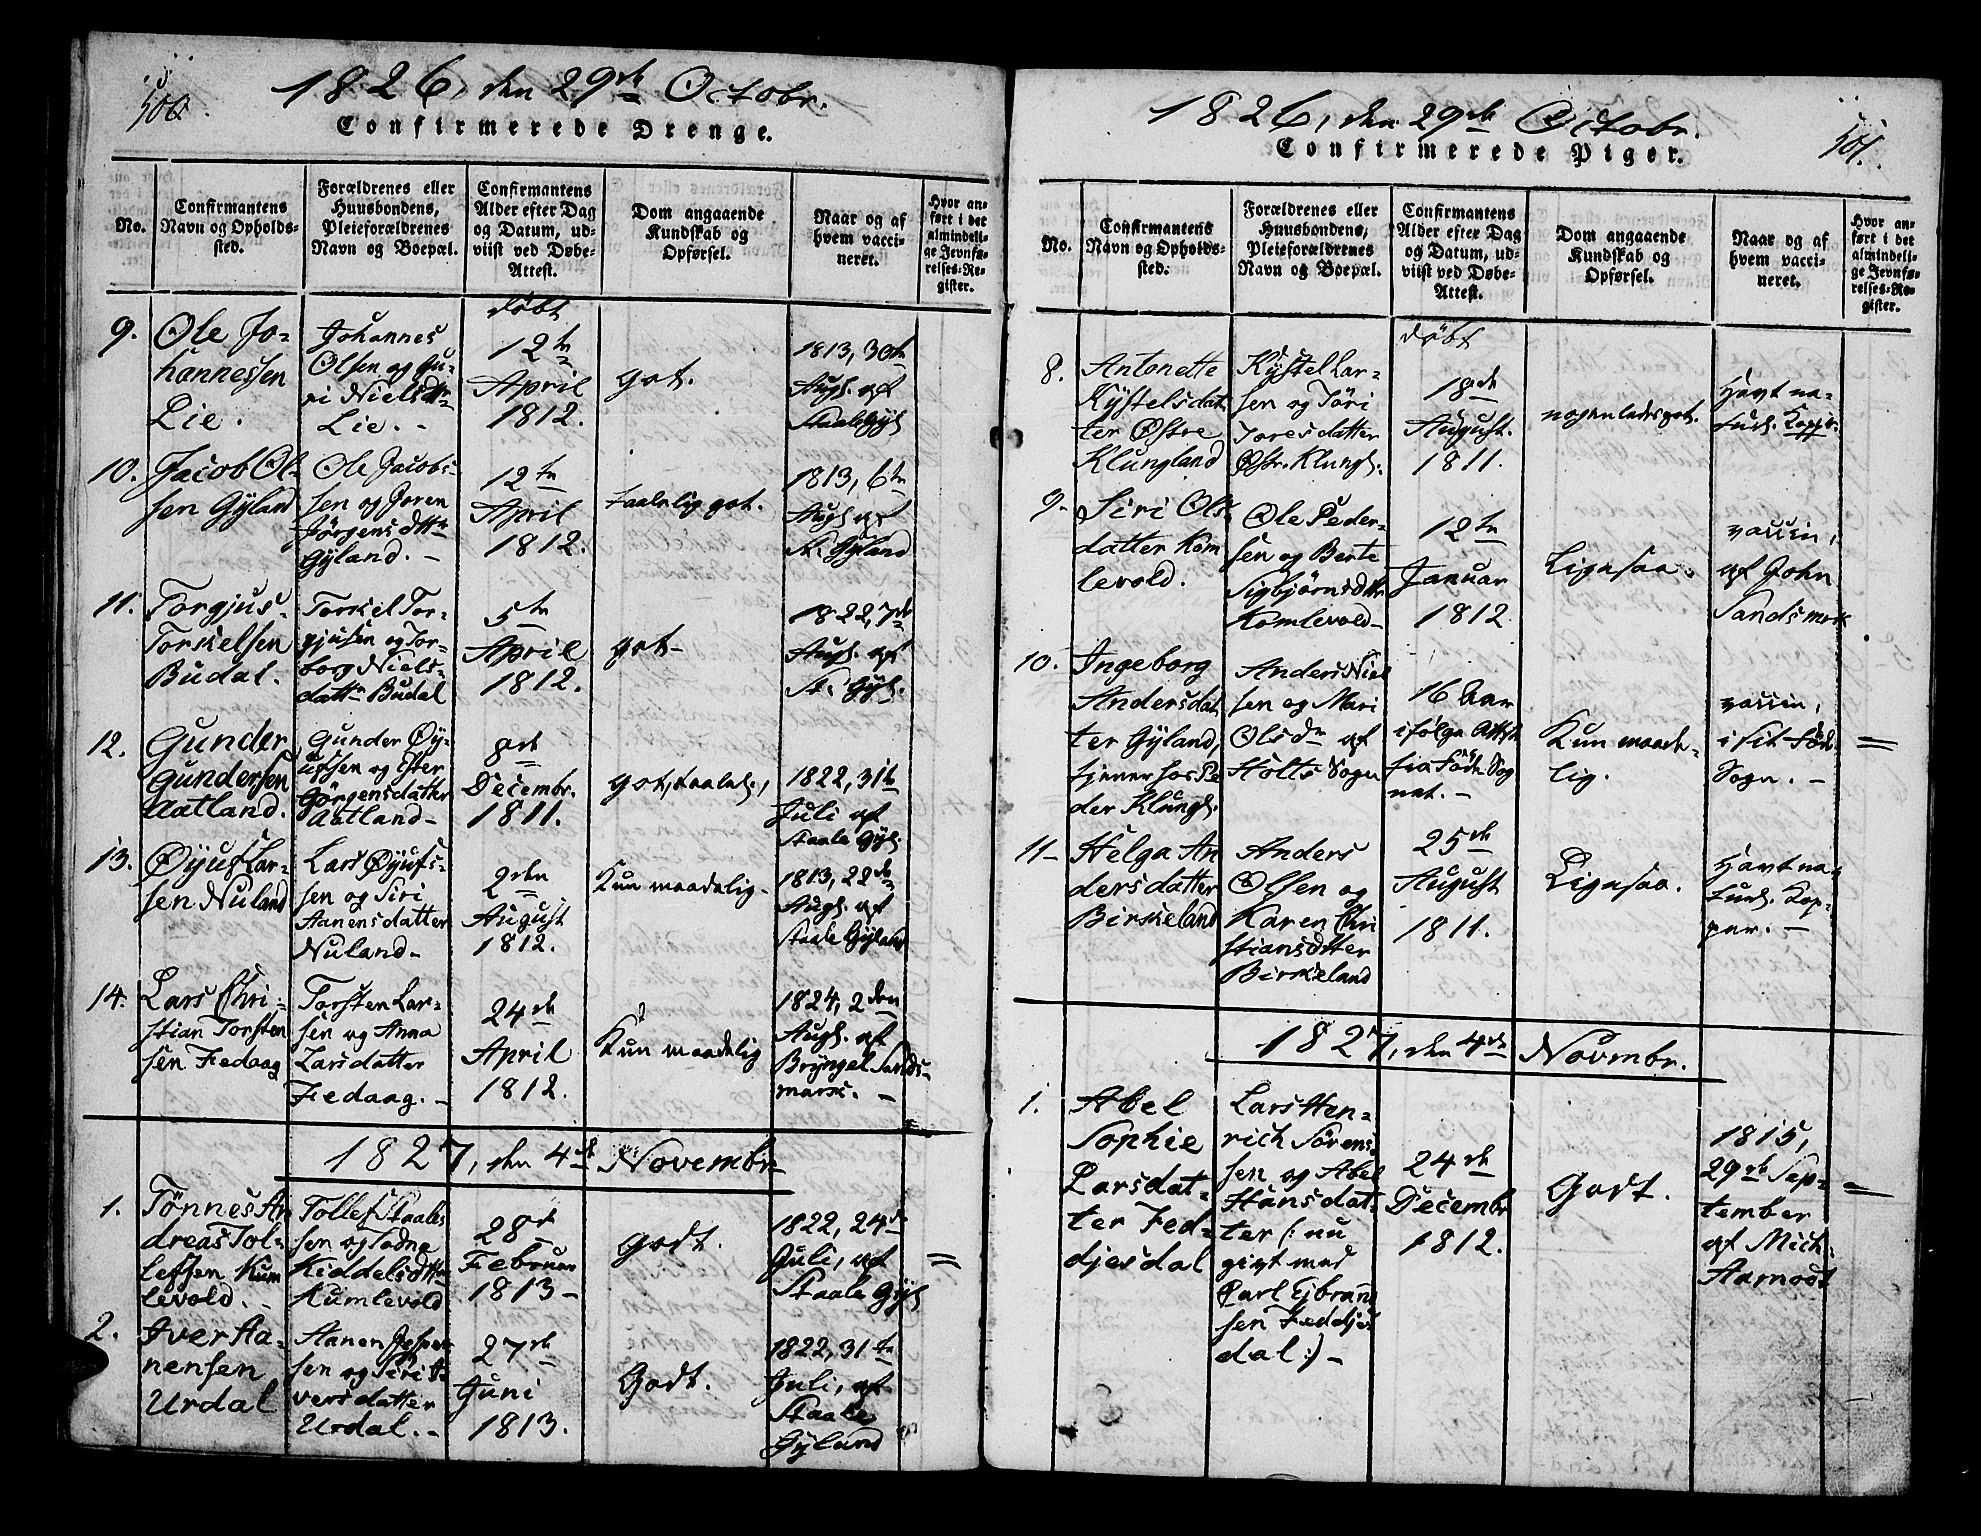 500.
1826, den 29de Octobr.
Confirmerede Drenge.
No.
Confirmantens
Navn og Opholds-
sted.
Forældrenes eller
Huusbondens,
Pleieforældrenes
Navn og Boepæl.
Confirmantens
Alder efter Dag
og Datum, ud-
viist ved Døbe-
Attest.
Dom angaaende
Kundskab og
Opførsel.
Naar og af
hvem vacci-
neret.
Hvor an-
ført i det
almindeli-
ge Jevnfø-
relses-Re-
gister.
9.
Ole Jo-
hannessen
Lie.
Johannes
Olsen og Gu-
ri Nielsdtr
Lie. -
døbt
12te
April
1812.
got.
1813, 30te
Augs. af
Staale Gyl.
10.
Jacob Ol-
sen Gyland
Ole Jacob-
sen og Joren
Jörgensdttr
Gyland. -
12te
April
1812.
taalelig got.
1813, 6te
Augs. af
St. Gyland
11.
Torgjus
Torkelsen
Budal.
Torkel Tor-
gjusen og Tor-
borg Niels-
dattr Budal
5te
April
1812.
got-
1822, 7de
Augs. af
St. Gyl.
12.
Gunder
Gundersen
Aatland.
Gunder Øy-
ufsen og Ester
Görgensdatter
Aatland-
8de
Decembr.
1811.
got, taalel.,
1822, 31te
Juli af
Staale Gyl.
13.
Øyuf Lar-
sen Nuland
Lars Øyufs-
sen og Siri
Aanensdatter
Nuland-
2den
August
1812.
Kun maadelig-
1813, 22de
Augs. af
Staale Gyland
14.
Lars Chri-
stian Torsten
sen Fedaag
Torsten Lar-
sen og Anna
Larsdatter
Fedaag. -
24de
April
1812.
Kun maadelig
1824, 2den
Augs. af
Bryngel Sands-
mark. -
1827, den 4de Novembr
1.
Tönnes An
dreas Tol-
lefsen Kum
levold. -
Tollef Staales
sen og Todne
Kiddelsdttr
Kumlevold
28de
Februar
1813-
Godt.
1822, 24de
Juli, af
Staale Gyl.
=
2.
Iver Aa-
nensen
Urdal
Aanen Jesper
sen og Siri I-
versdatter
Urdal. -
27de
Juni
1813.
Godt.
1822, 31te
Juli, af
Staale
Gyland
501.
1826, den 29de Octobr.
Confirmerede Piger.
No.
Confirmantens
Navn og Opholds-
sted.
Forældrenes eller
Huusbondens,
Pleieforældrenes
Navn og Boepæl.
Confirmantens
Alder efter Dag
og Datum, ud-
viist ved Døbe-
Attest.
Dom angaaende
Kundskab og
Opførsel.
Naar og af
hvem vacci-
neret.
Hvor an-
ført i det
almindeli-
ge Jevnfø-
relses-Re-
gister.
8.
Antonette
Kystelsdat-
ter Østre
Klungland
Kystel Lar-
sen og Töri
Toresdatter
Østr. Klungl.
døbt
18de
August.
1811.
nogenledes got.
Havt na-
turl. Kopper.
9.
Siri Ols-
datter Kom
levold.
Ole Peder-
sen og Berte
Sigbjörnsdtter
Komlevold-
12te
Januar
1812
Ligesaa.
vaccin.
af John
Sandsmark
10.
Ingeborg
Andersdat
ter Gyland,
tjener hos Pe
der Klungl.
Anders Niel
sen og Mari
Olsdr af
Holts Sogn
16 Aar
ifølge Attest
fra Føde Sog
net. -
Kun maade-
lig.
vaccin.
i sit Føde
Sogn. -
=
11-
Helga An
dersdatter
Birkeland
Anders
Olsen og
Karen Chri
stiansdtter
Birkeland
25de
August
1811.
Ligesaa.
Havt na-
turl. Kop-
per. -
1827, den 4de Novmbr.
1.
Abel
Sophie
Larsdat-
ter Fed-
djesdal
Lars Hen-
rich Sörens
sen og Abel
Hansdat-
ter (: nu
givt med
Carl Ejbrand
sen Feddjes
dal :) -
24de
Decembr
1812.
Godt.
1815,
29de Sep-
tember
af Mich.
Aamodt
=